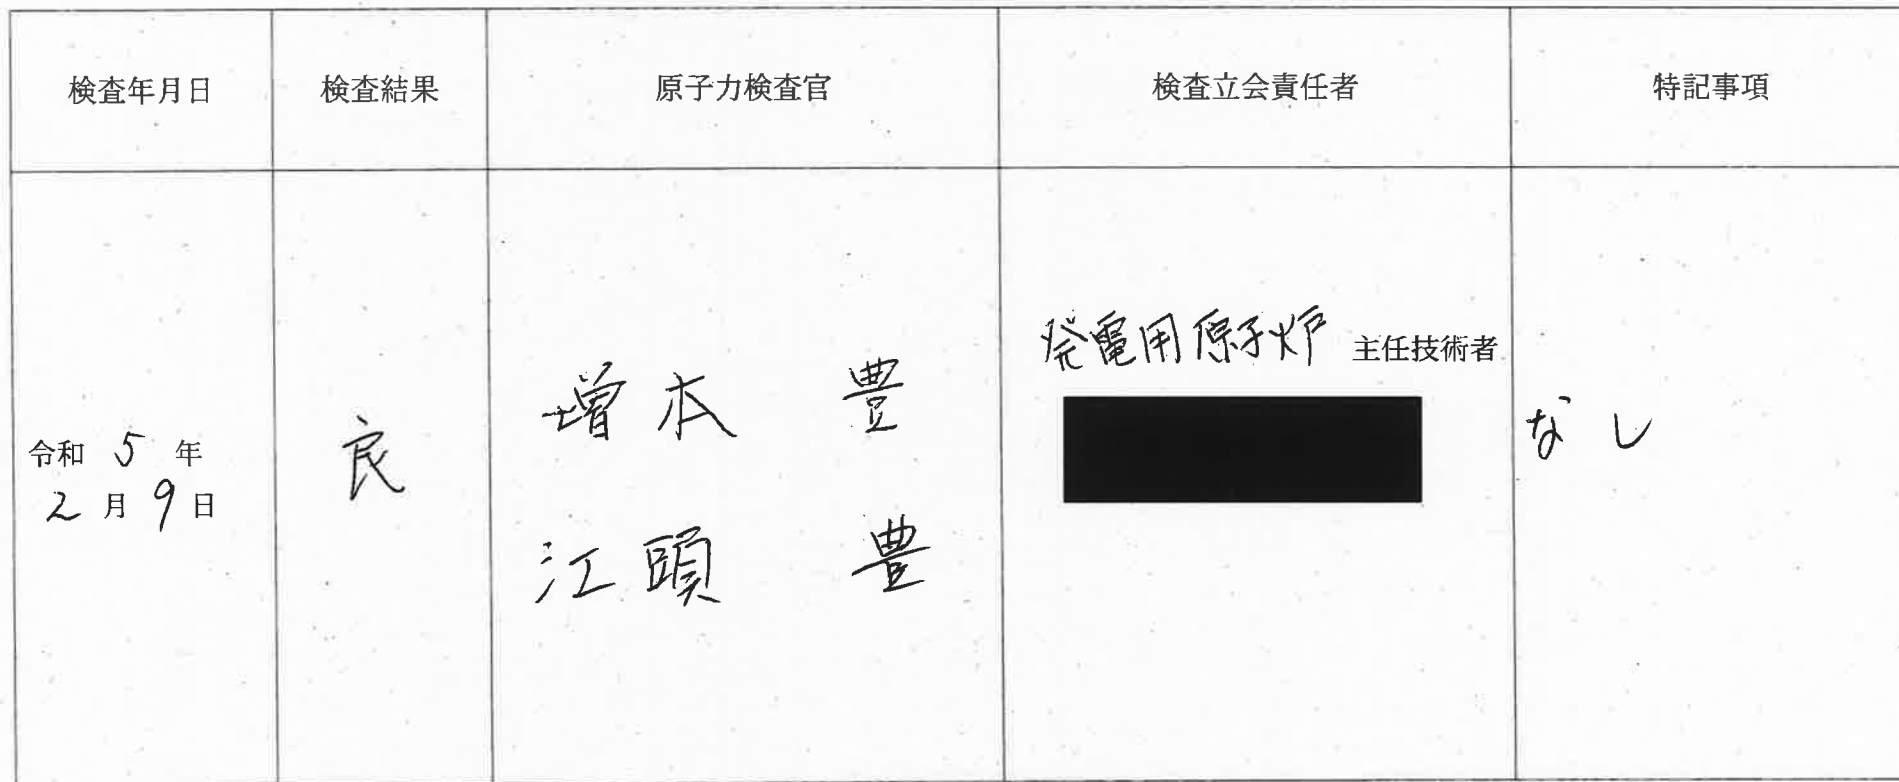 検査年月日
検査結果
原子力検査官
検査立会責任者
特記事項
令和 5 年
2 月 9 日
良
増本 豊
江頭 豊
発電用原子炉 主任技術者
なし